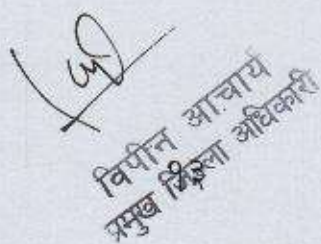 विपीन आचार्य
प्रमुख जिल्ला अधिकारी
१३